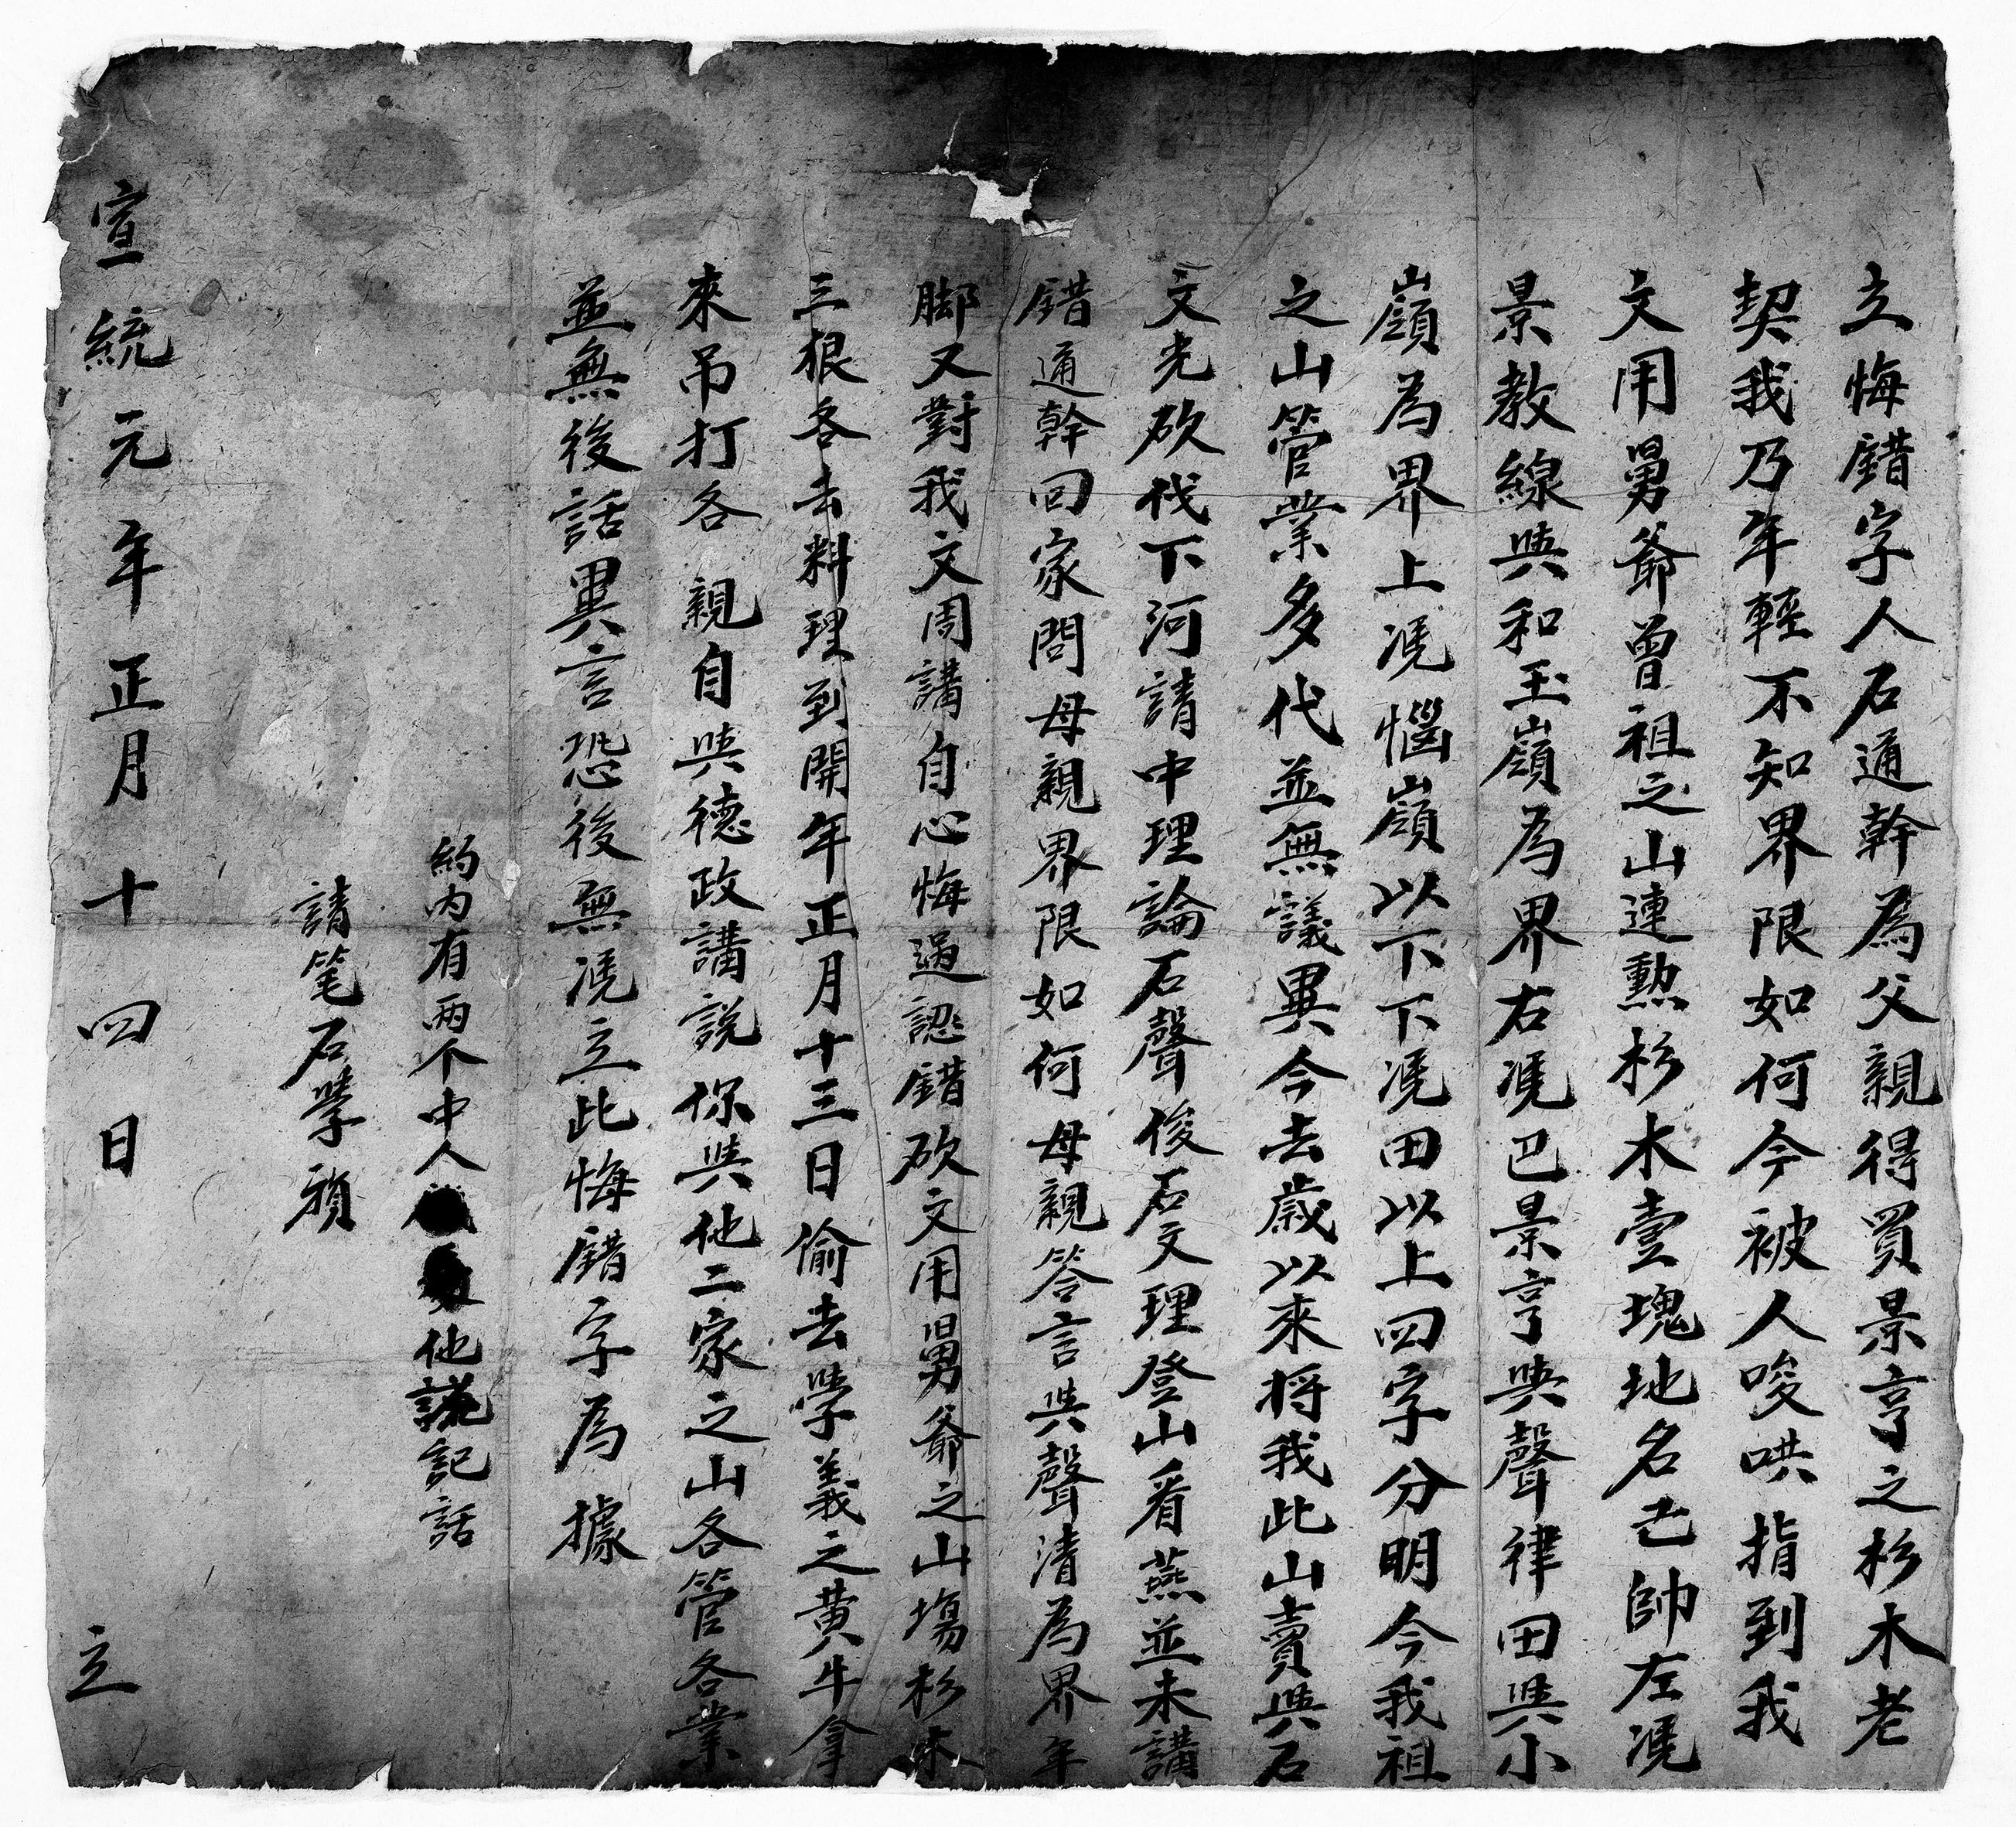 立悔錯字人石通幹為父親得買景亨之杉木老
契我乃年輕不知界限如何今被人唆哄指到我
文用舅爺曾祖之山連懃杉木壹塊地名乜帥左凴
景教線與和玉嶺為界右凴巴景亨與聲律田與小
嶺為界上凴惱嶺以下下凴田以上四字分明今我祖
之山管業多代並無議異今去歲以來将我此山賣與石
文光砍伐下河請中理論石聲俊石文理登山看燕並未講
錯通幹回家問母親界限如何母親答言與聲清為界年
脚又對我文周講自心悔過認錯砍文用舅爺之山塲杉木
三根各去料理到開年正月十三日偷去學義之黄牛拿
來吊打各親自與德政講説你與他二家之山各管各業
並無後話異言恐後無凴立此悔錯字為據
約内有兩个中人他謊記話
請笔石學㱔
宣統元年正月十四日立